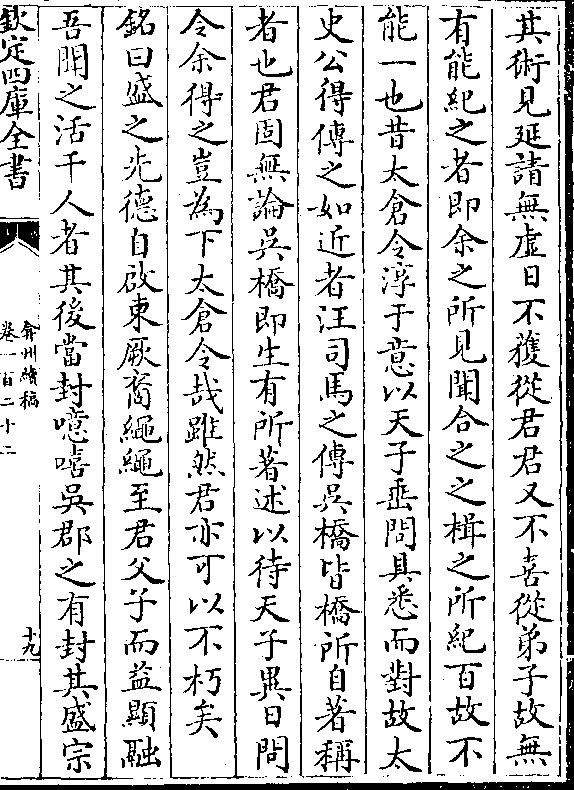 其術見延請無虛日不獲從君君又不喜從弟子故無
有能紀之者即余之所見聞合之之楫之所紀百故不
能一也昔太倉令淳于意以天子垂問具悉而對故太
史公得傳之如近者汪司馬之傳吳橋皆橋所自著稱
者也君固無論吳橋即生有所著述以待天子異日問
令余得之豈為下太倉令哉雖然君亦可以不朽矣
銘曰盛之先德自啟東厥裔繩繩至君父子而益顯融
吾聞之活千人者其後當封噫嘻吳郡之有封其盛宗
欽定四庫全書
弇州續稿
卷一百二十二
十九